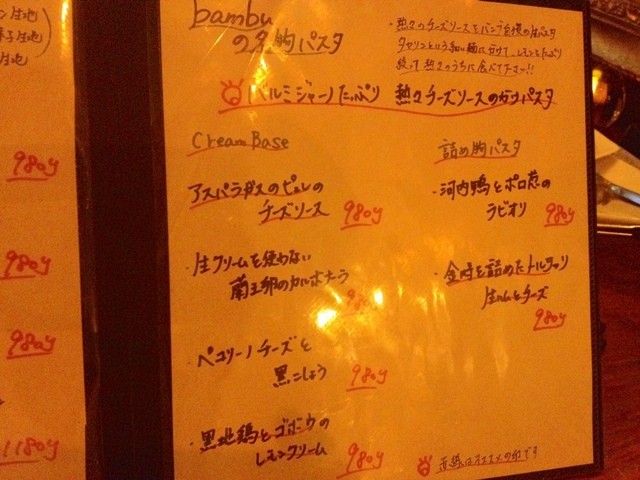 bambu
の名物パスタ
・熱々のチーズソースをバンブ自慢の生パスタ
タヤリンという細い麺にかけて、レモンをたっぷり
絞って熱々のうちに食べて下さい!!
パルミジャーノたっぷり 熱々チーズソースのかけパスタ
Cream Base
アスパラガスのピュレの
チーズソース 980y
・生クリームを使わない
蘭王卵のカルボナーラ
980y
・ペコリーノチーズと
黒こしょう 980y
・黒地鶏とゴボウの
レモンクリーム 980y
詰め物パスタ
・河内鴨とポロ葱の
ラビオリ 980y
・を詰めたトルテッリ
生ハムとチーズ
980y
はオススメの印です
980y
980y
980y
1180y